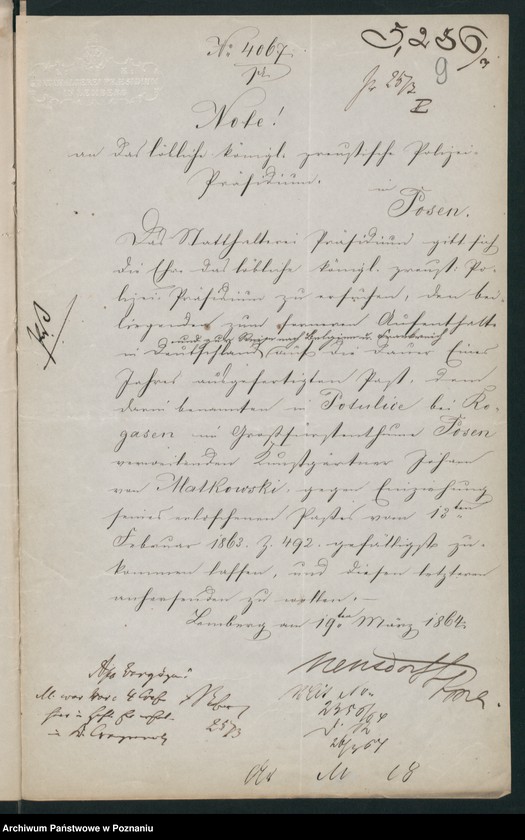 No 4067
pr.
5,256/3
9
pr 25/3
II
Note!
an das löbliche königl. preußische Polizei-
Präsidium.
in
Posen.
Das Statthalterei Präsidium gibt sich
die Ehre das löbliche königl. preuß. Po-
lizei Präsidium zu ersuchen, den bei-
liegenden zum ferneren Aufenthalte
und zur Reise nach Belgien u. Frankreich
in Deutschland auf die Dauer Eines
Jahres ausgefertigten Paß, dem
darin benannten in Potulice bei Ro-
gasen im Großfürstenthume Posen
verweilenden Kunstgärtner Johann
von Matkowski, gegen Einziehung
seines erloschenen Paßes vom 13ten
Februar 1863. Z. 492. gefälligst zu-
kommen lassen, und diesen letzteren
anhersenden zu wollen.–
Lemberg am 19ten März 1864.
Mensdorff
25/3
2350/64
26/3 64
M
18
Archiwum Państwowe w Poznaniu